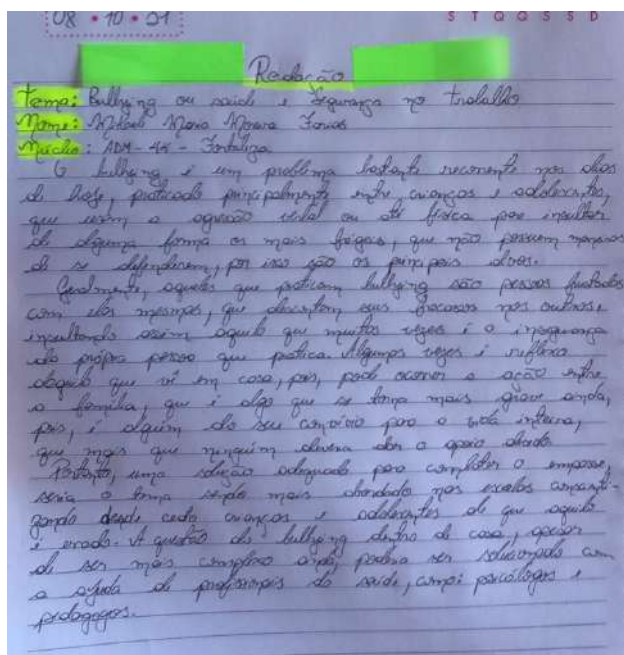 08 • 10 • 21 S T Q Q S S D
Redação
Tema: Bullying ou saúde e Segurança no trabalho
Nome: Maria Farias
Núcleo: ADM - - Fortaleza
O bullying é um problema bastante recorrente nos dias
de hoje, praticado principalmente entre crianças e adolescentes,
que usam a agressão verbal ou até física para insultar
de alguma forma os mais frágeis, que não possuem maneiras
de se defenderem, por isso são os principais alvos.
Geralmente, aqueles que praticam bullying são pessoas frustadas
com elas mesmas, que descontam seus fracassos nos outros,
insultando assim aquilo que muitas vezes é a insegurança
da própria pessoa que pratica. Algumas vezes é reflexo
daquilo que vê em casa, pois, pode ocorrer a ação entre
a família, que é algo que se torna mais grave ainda,
pois, é alguém do seu convívio para a vida inteira,
que mais que ninguém deveria dar o apoio
Portanto, uma solução adequada para o impasse,
seria o tema sendo mais abordado nas escolas conscienti-
zando desde cedo crianças e adolescentes de que aquilo
é errado. A questão do bullying dentro de casa, apesar
de ser mais complexo ainda, poderia ser solucionado com
a ajuda de profissionais da saúde, como: psicólogos e
pedagogos.